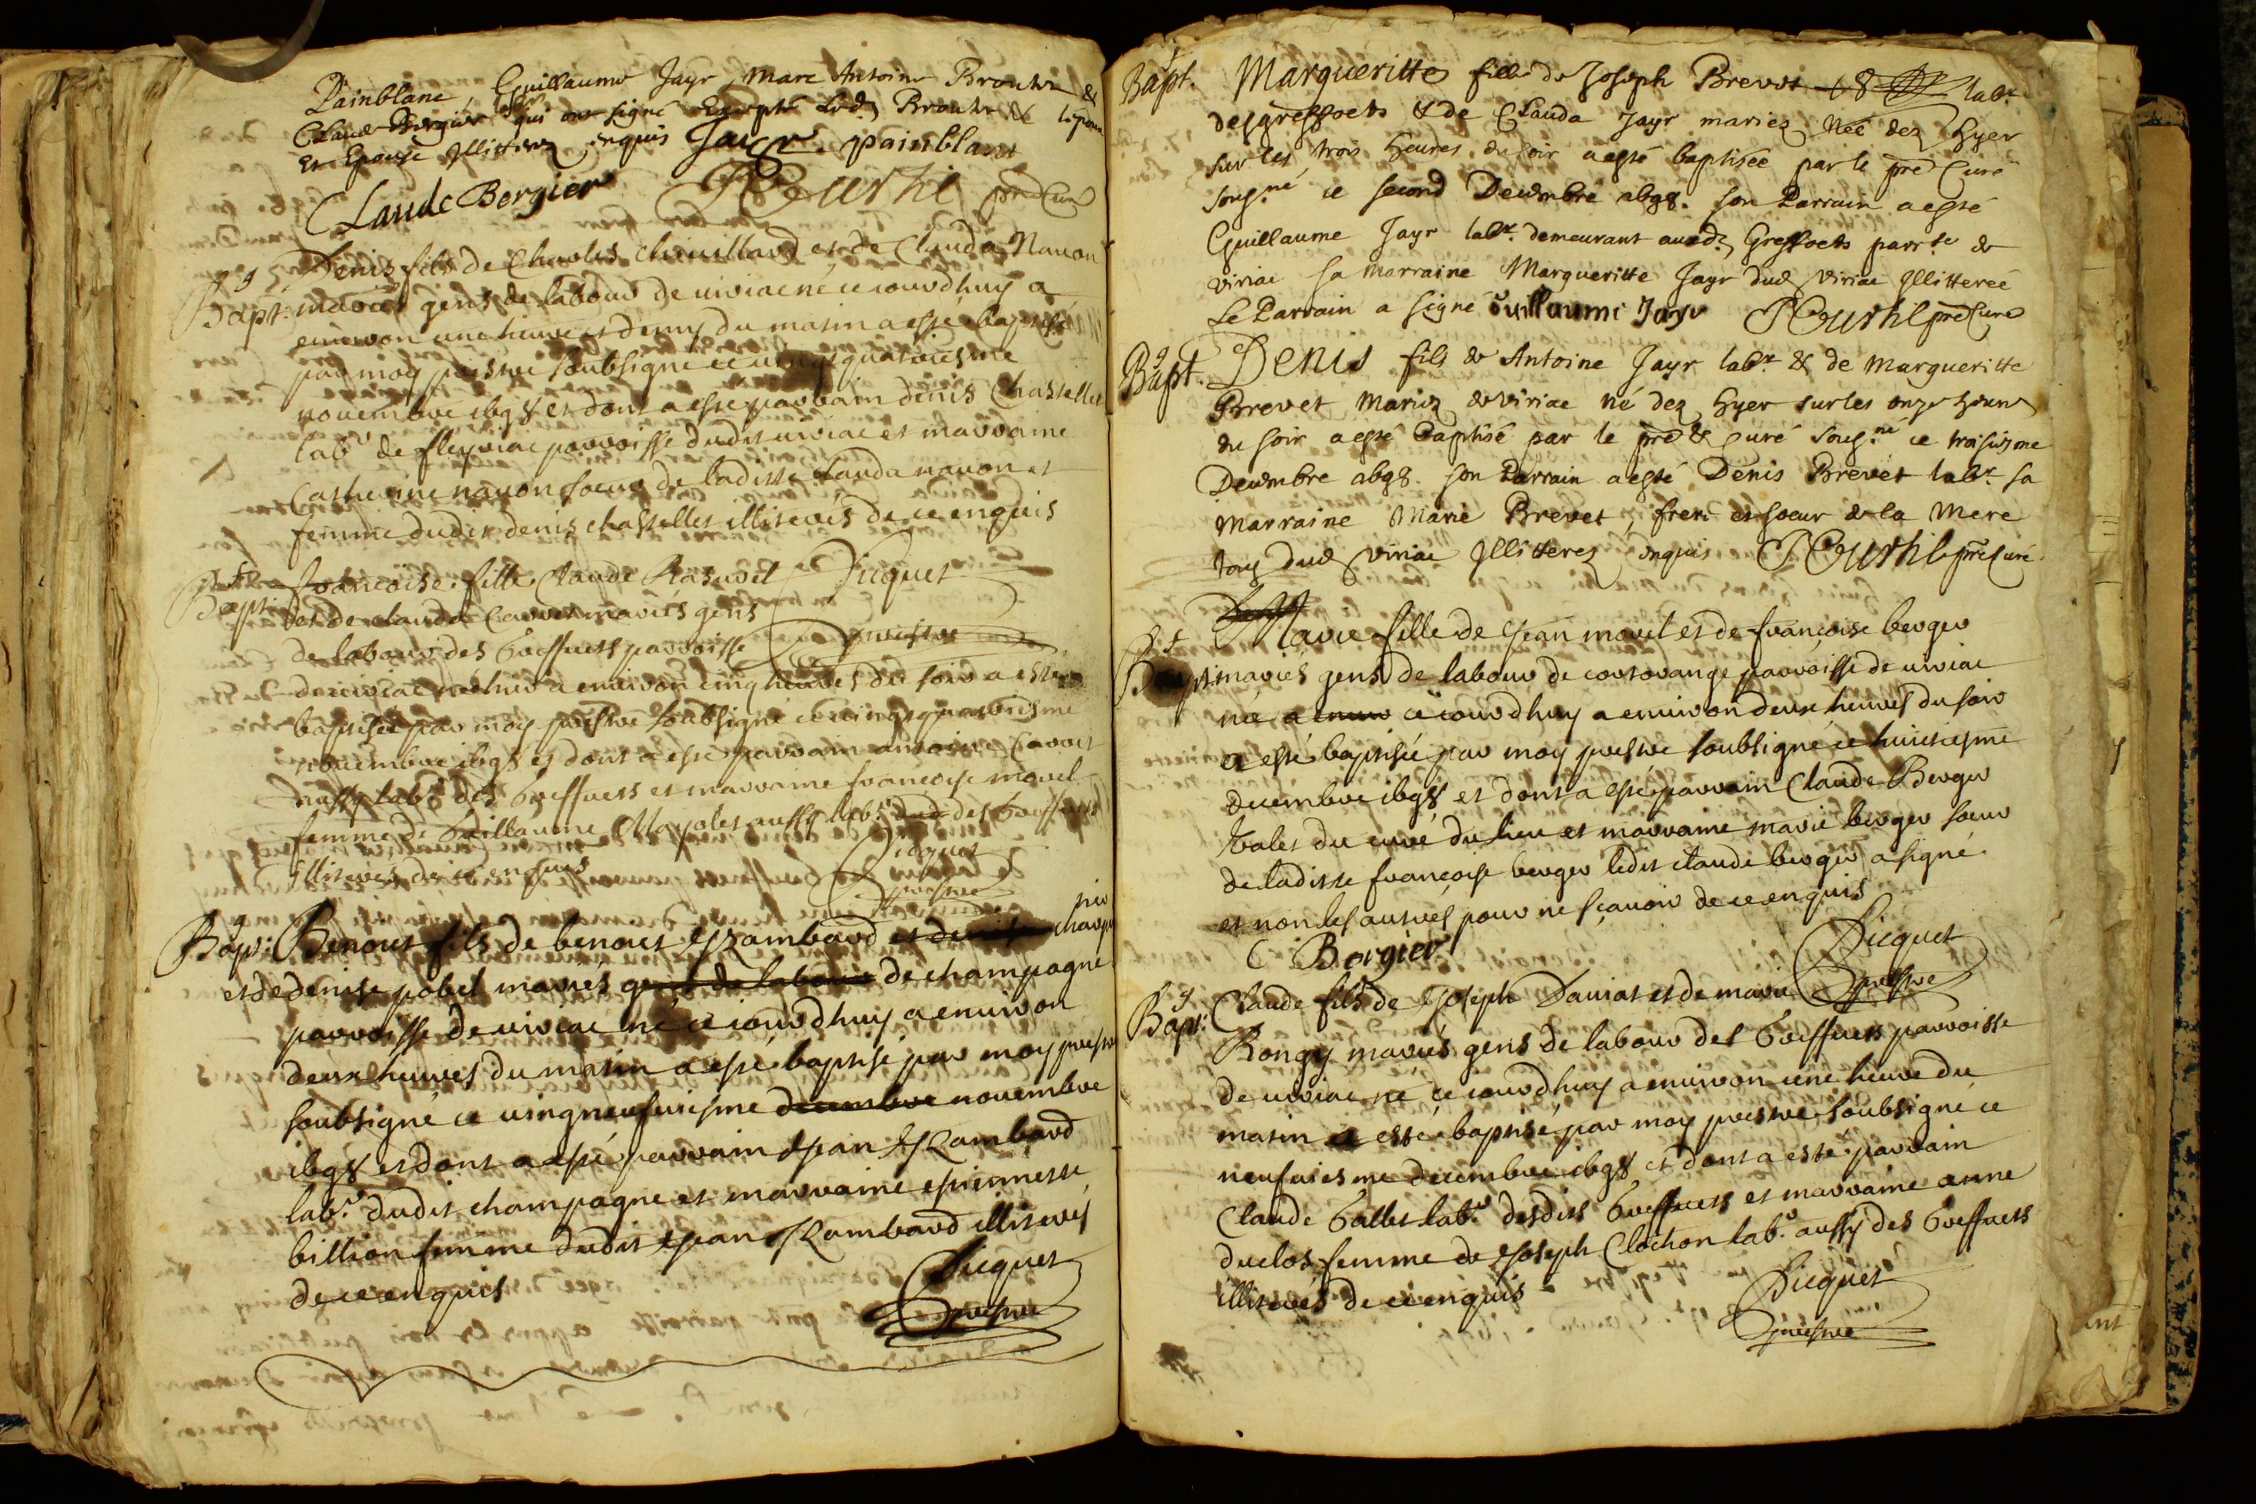 Painblanc Guillaume Jayr Marc Antoine Brouhe &
Claude Bergier qui ont signé Excepté led. Brouhe & lepoux
et Epouse Illitterez enquis Jayr painblanc
Claude Bergier Courhil pre Curé
Bapt. Denis fils de Charles Chevillard et de Clauda Nauon
mariés gens de labour de uiriac né ce iourdhuy a
enuiron une heure et demy du matin a esté baptisé
par moy prestre soubsigné ce uingtquatriesme
nouembre 1698 et dont a esté parrain denis Chastellet
labr. de fleyriac parroisse dudit uiriac et marraine
Catherine nauon soeur de laditte Clauda nauon et
femme dudit denis chastellet illiterés de ce enquis
Bapt. francoise fille Claude Rasurel Picquet
et de clauda Carret mariés gens prestre
de labour des Greffuets parroisse
de uiriac née hier a enuiron cinq heures du soir a esté
baptisée par moy prestre soubsigné ce uingtquatriesme
nouembre 1698 et dont a esté parrain antoine Carret
aussy labr. des Greffuets et marraine francoise morel
femme de Guillaume Mayolet aussy labr. dud des Greffuets
illiterés de ce enquis Picquet
prestre
Bapt. Benoit fils de benoit Rambaud et de
et de denise pobel mariés gens de labour de champagne
parroisse de uiriac né ce iourdhuy a enuiron
deux heures du matin a esté baptisé par moy prestre
soubsigné ce uingtneufuiesme decembre nouembre
1698 et dont a esté parrain Jean Rambaud
labr. dudit champagne et marraine estiennette
billion femme dudit Jean Rambaud illiterés
de ce enquis Picquet
prestre
Bapt. Margueritte fille de Joseph Brevet labr
des greffoets & de Clauda Jayr mariez Née dez Hyer
sur les trois heures du soir a esté baptisée par le pre Curé
sousné. ce second Decembre 1698. son Parrain a esté
Guillaume Jayr labr. demeurant auxd. Greffoets parrse de
viriac sa marraine Margueritte Jayr dud viriac Illitterée
Le Parrain a signé Guillaume Jayr Courhil pre Curé
Bapt. Denis fils de Antoine Jayr labr & de Margueritte
Brevet Mariez de viriac né dez Hyer sur les onze heures
du soir a esté Baptisé par le pre & curé sousné ce troisiesme
Decembre 1698. son Parrain a esté Denis Brevet labr. sa
Marraine Marie Brevet, frere et soeur de la Mere
tous dud viriac Illitterez enquis Courhil pre Curé
Bapt. Marie fille de Jean morel et de francoise berger
mariés gens de labour de cortorange parroisse de uiriac
née a enuir ce iourdhuy a enuiron deux heures du soir
a esté baptisée par moy prestre soubsigné ce huictiesme
decembre 1698 et dont a esté parrain Claude Berger
Valet du curé du lieu et marraine marie berger soeur
de laditte francoise berger ledit claude berger a signé
et non les autres pour ne sçauoir de ce enquis
C Bergier Picquet
prestre
Bapt. Claude fils de Joseph Dauiat et de marie
Rongy mariés gens de labour des Greffuets parroisse
de uiriac né ce iourdhuy a enuiron une heure du
matin a esté baptisé par moy prestre soubsigné ce
neufuiesme decembre 1698 et dont a esté parrain
Claude Gallet labr. desdits Greffuets et marraine anne
duclos femme de Joseph Clochon labr. aussy des Greffuets
illiterés de ce enquis Picquet
prestre